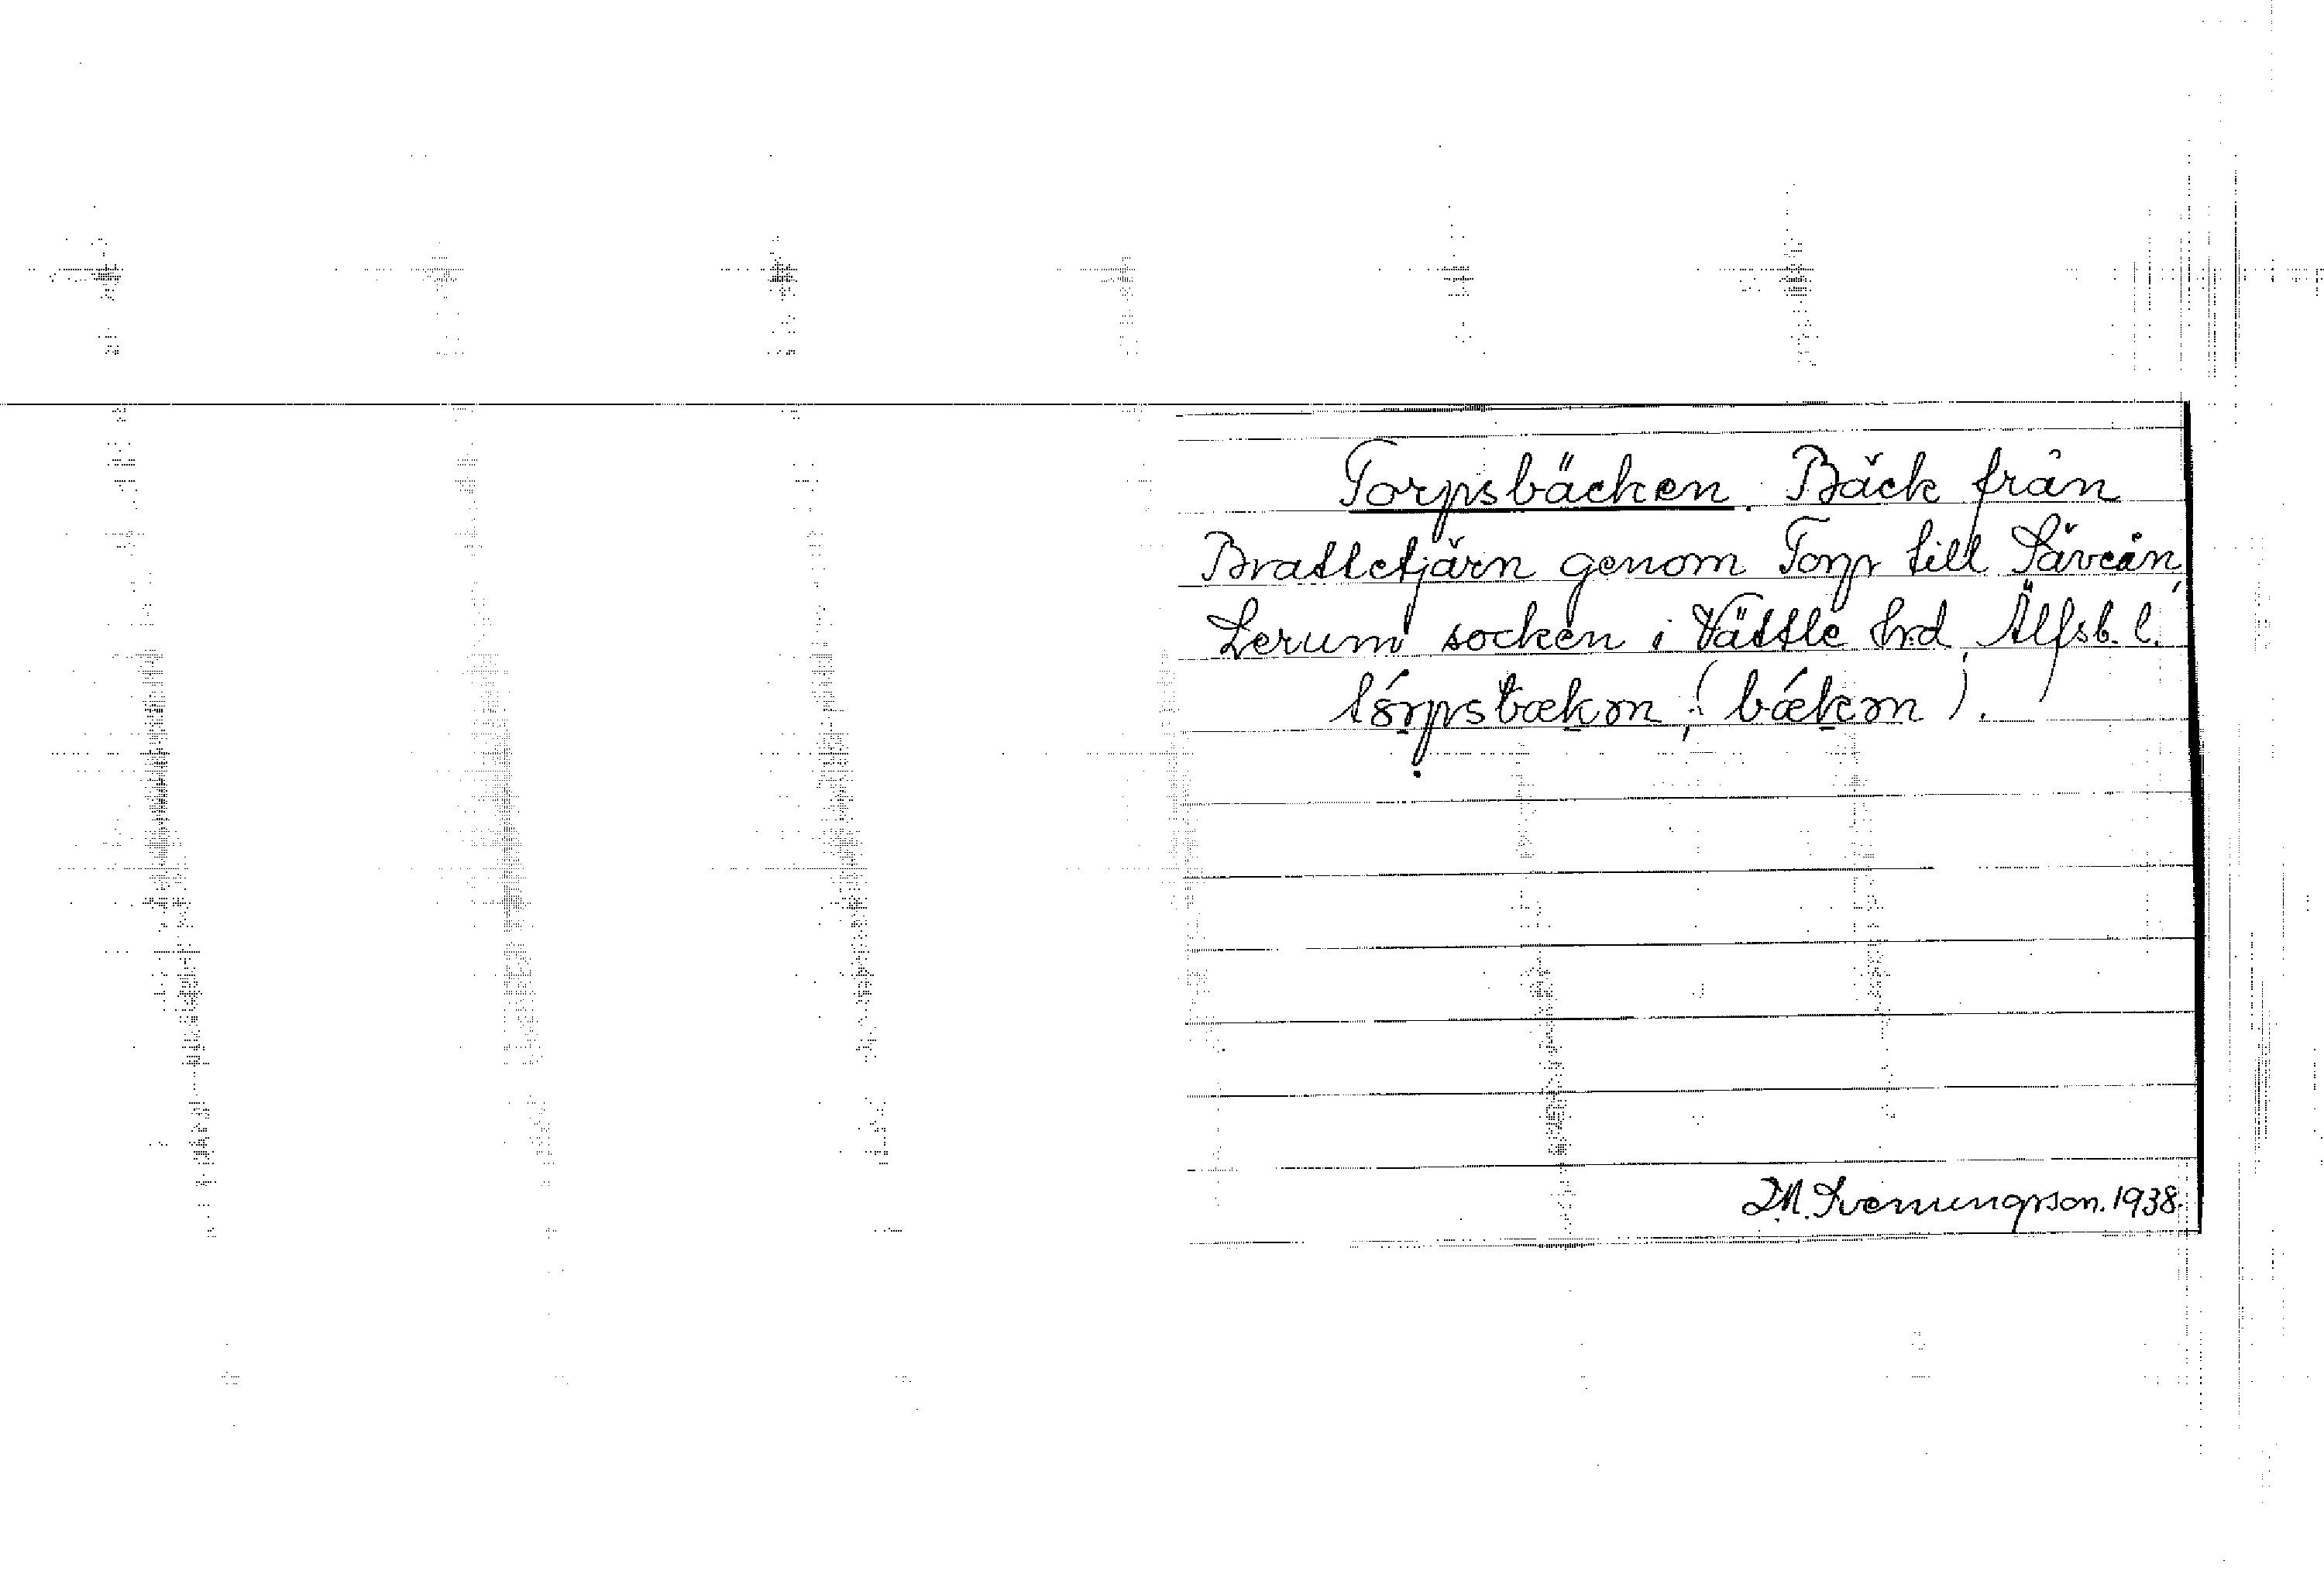 Torpsbäcken. Bäck från
Brattetjärn genom Torp till Säveån,
Lerum socken i Vättle hd, Älfsb. l.
tórpsbækən, (bǽkən).
D.M. Svenungsson. 1938.